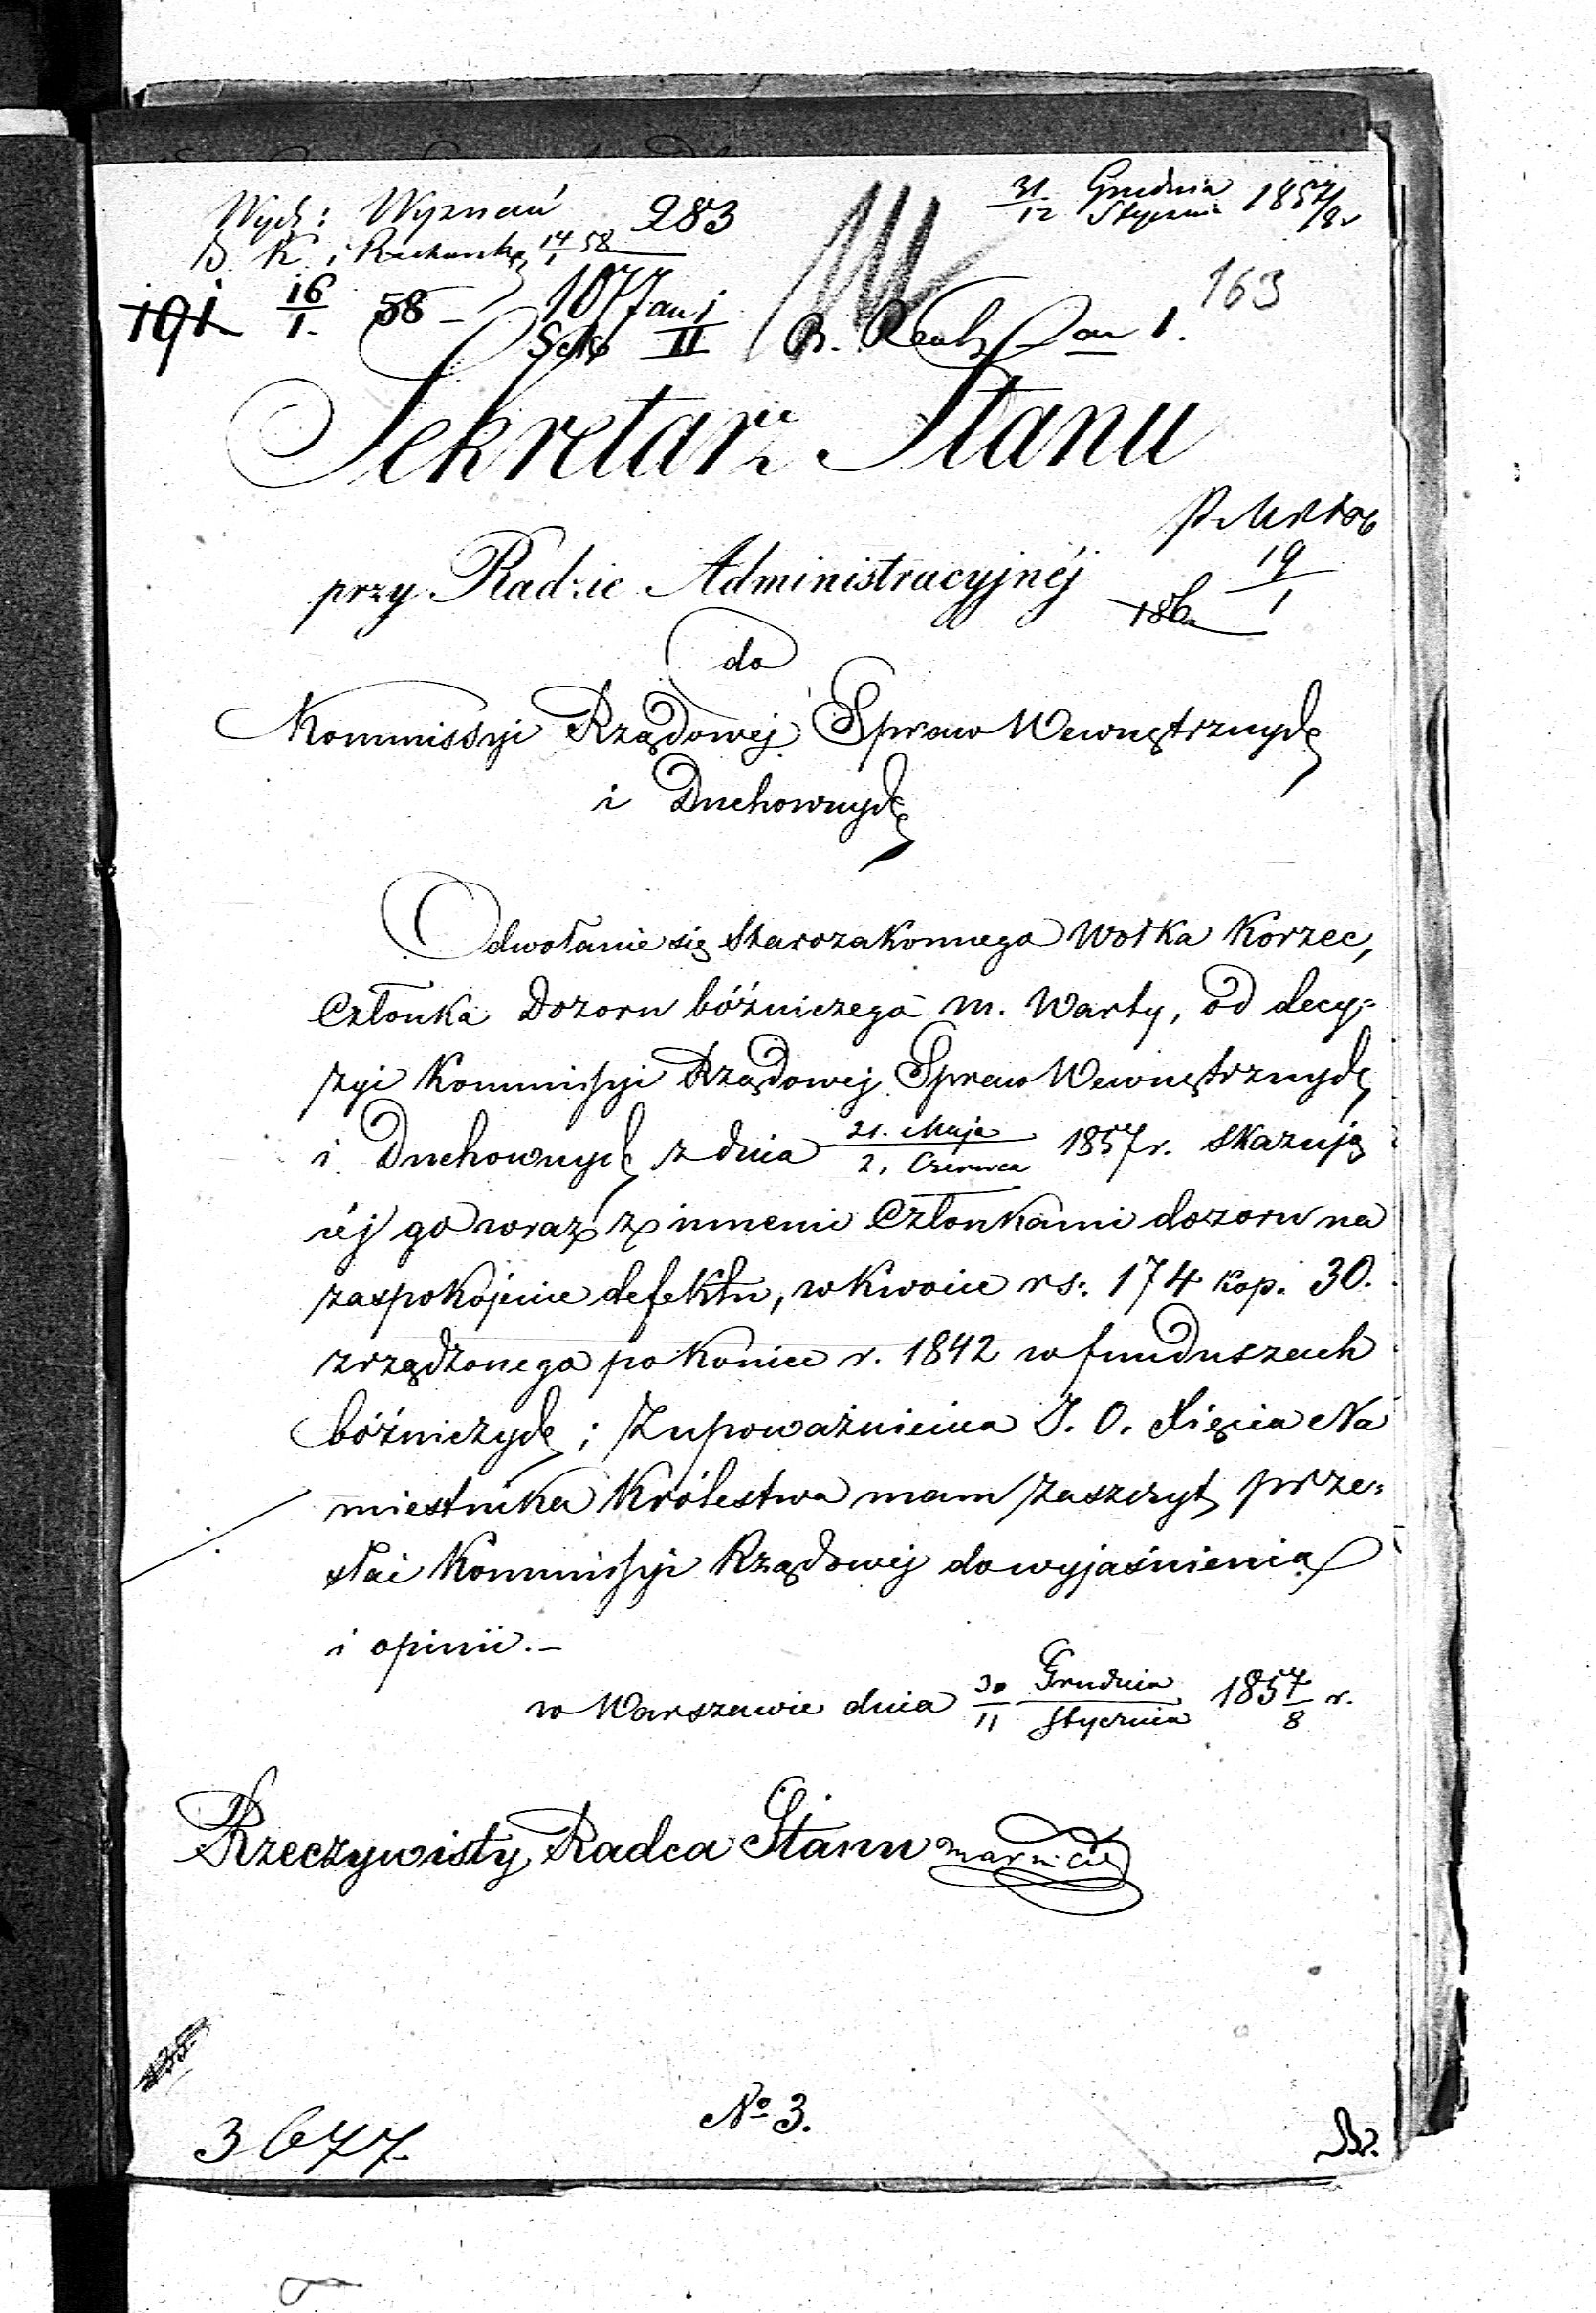 Wydz: Wyznań 283
31/12 Grudnia/Stycznia 1857/8 r
14/1 58
163
191 16/1. 58 - 1077
II
Sekretarz Stanu
przy Radzie Administracyjnéj
19/1
do
Kommissyi Rządowej Spraw Wewnętrznych
i Duchownych
Odwołanie się Starozakonnego Wolka Korzec,
Członka Dozoru bóżniczego m. Warty, od decy=
zyi Kommissyi Rządowej Spraw Wewnętrznych
i Duchownych z dnia 21. Maja/2. Czerwca 1857 r. skazują
céj go wraz z innemi Członkami dozoru na
zaspokojenie defektu, w kwocie rs: 174 kop. 30.
zrządzonego po koniec r. 1842 w funduszach
bóżniczych; Z upoważnienia J. O. Xięcia Na
miestnika Królestwa mam zaszczyt prze=
słać Kommissyi Rządowej do wyjaśnienia
i opinii. -
w Warszawie dnia 30/11 Grudnia/Stycznia 1857/8 r.
Rzeczywisty Radca Stanu
3677.
No 3.